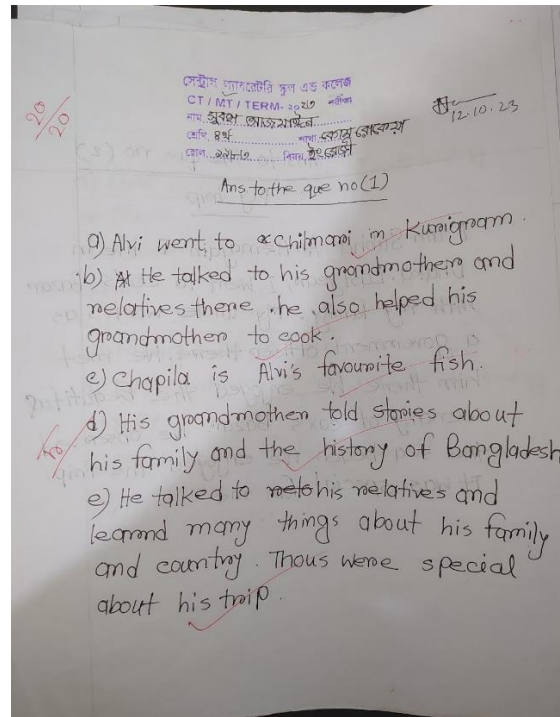 20/20
সেন্ট্রাল প্যানরেটরি স্কুল এন্ড কলেজ
CT / MT / TERM-২০২৩ পরীক্ষা
12.10.23
নাম
শ্রেণি, ৪র্থ শাখা
রোল বিষয়
Ans to the que no (1)
a) Alvi went to Chilmari in Kurigram.
b) He talked to his grandmother and
relatives there. he also helped his
grandmother to cook.
c) Chapila is Alvi's favourite fish.
d) His grandmother told stories about
his family and the history of Bangladesh
e) He talked to his relatives and
learnd many things about his family
and country. Thous were special
about his trip.